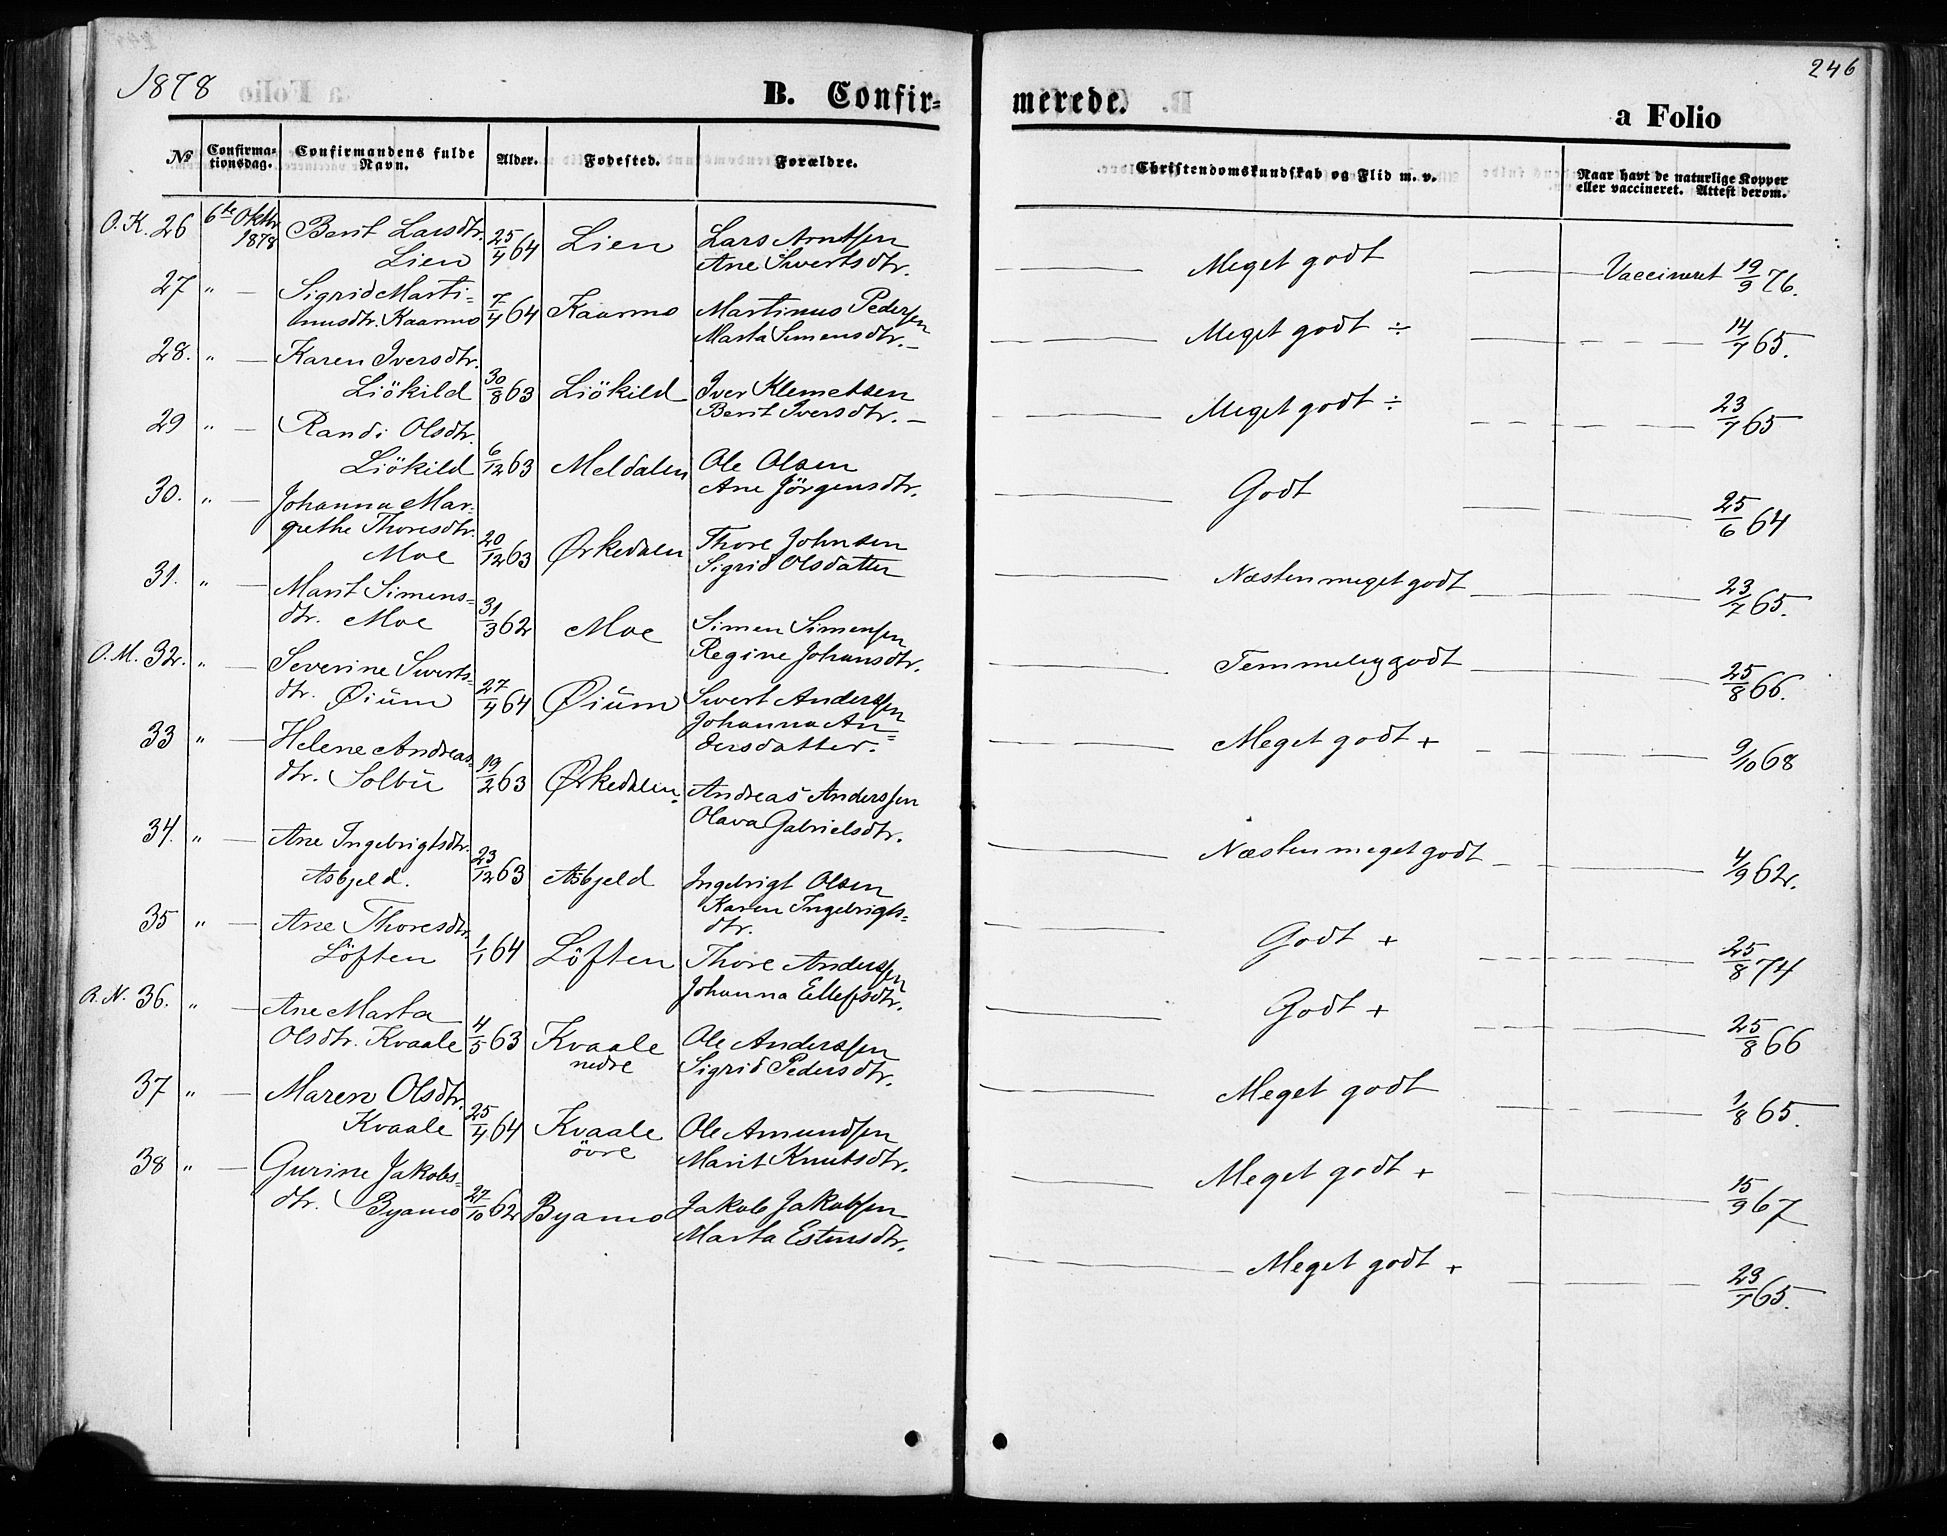 1878
B. Confir-
merede.
246
a Folio
No
Confirma-
tionsdag.
Confirmandens fulde
Navn.
Alder.
Fødested.
Forældre.
Christendomskundskab og Flid m. v.
Naar havt de naturlige Kopper
eller vaccineret. Attest derom.
O. K. 26 6te Oktbr 1878 Berit Larsdtr. Lien 25/4 64 Lien Lars Arntsen
Ane Sivertsdtr. Meget godt Vaccineret 19/9 76.
27 " Sigrid Marti-
nusdtr. Kaarmo 7/4 64 Kaarmo Martinus Pedersen
Marta Simensdtr. Meget godt ÷ 14/7 65.
28. " Karen Iversdtr.
Liökild 30/8 63 Liökild Iver Klemetsen
Berit Iversdtr. Meget godt ÷ 23/7 65
29 " Randi Olsdtr.
Liökild 6/12 63 Meldalen Ole Olsen
Ane Jörgensdtr. Godt 25/6 64
30. " Johanna Mar-
grethe Thoresdtr.
Moe 20/12 63 Ørkedalen Thore Johnsen
Sigrid Olsdatter Næsten meget godt 23/7 65.
31. " Marit Simens-
dtr. Moe 31/3 62 Moe Simen Simensen
Regine Johansdtr. Temmelig godt 25/8 66.
O. M. 32. " Severine Siverts-
dtr. Øium 27/4 64 Øium Sivert Anderssen
Johanna An-
dersdatter. Meget godt + 9/10 68
33 " Helene Andreas-
dtr. Solbu 19/2 63 Ørkedalen. Andreas Anderssen
Olava Gabrielsdtr. Næsten meget godt 4/9 62.
34. " Ane Ingebrigtsdtr.
Asbjeld. 23/12 63 Asbjeld Ingebrigt Olsen
Karen Ingebrigts-
dtr. Godt + 25/8 74
35 " Ane Thoresdtr.
Löften 1/1 64 Löften Thore Anderssen
Johanna Ellefsdtr. Godt + 25/8 66
R. N. 36. " Ane Marta
Olsdtr. Kvaale 4/5 63 Kvaale
nedre Ole Anderssen
Sigrid Pedersdtr. Meget godt 1/8 65.
37 " Maren Olsdtr.
Kvaale 25/4 64 Kvaale
övre Ole Amundsen
Marit Knutsdtr. Meget godt + 15/9 67
38 " Gurine Jakobs-
dtr. Byamo 27/10 62 Byamo Jakob Jakobsen
Marta Estensdtr. Meget godt + 23/7 65.